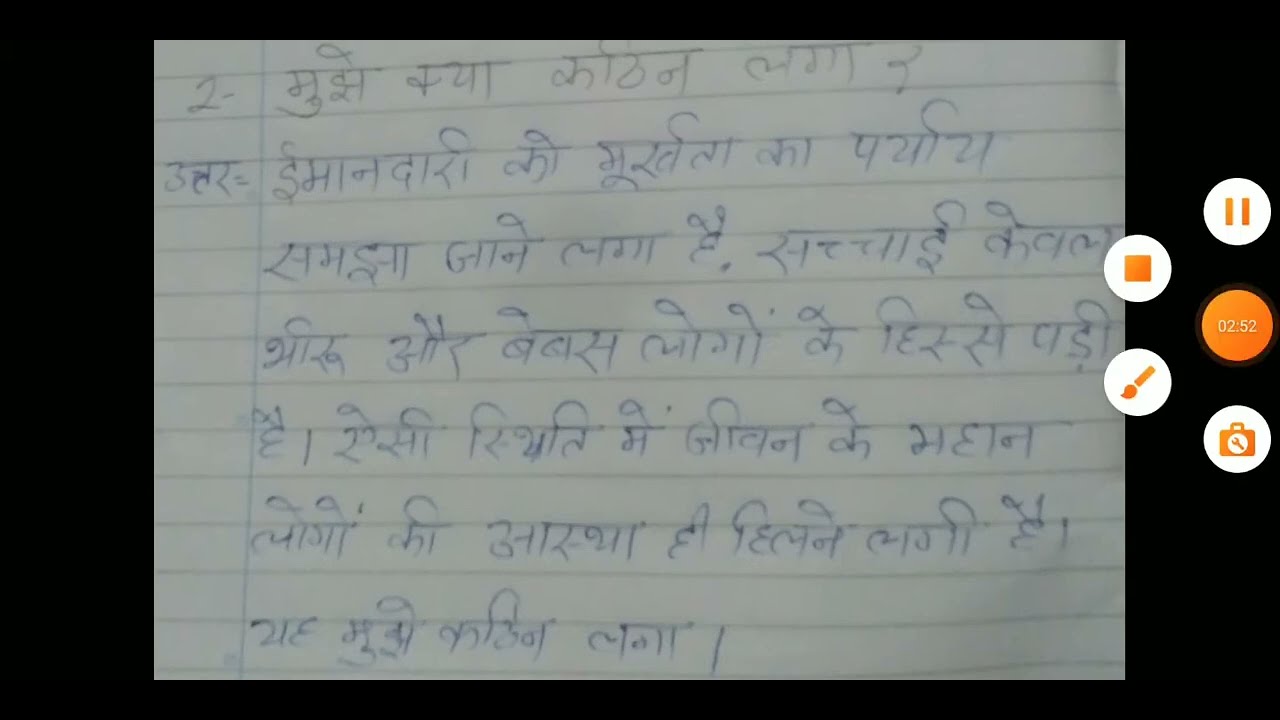 2- मुझे क्या कठिन लगा ?
उत्तर= ईमानदारी को मूर्खता का पर्याय
समझा जाने लगा है, सच्चाई केवल
भीरू और बेबस लोगों के हिस्से पड़ी
है। ऐसी स्थिति में जीवन के महान
लोगों की आस्था ही हिलने लगी है।
यह मुझे कठिन लगा।
02:52